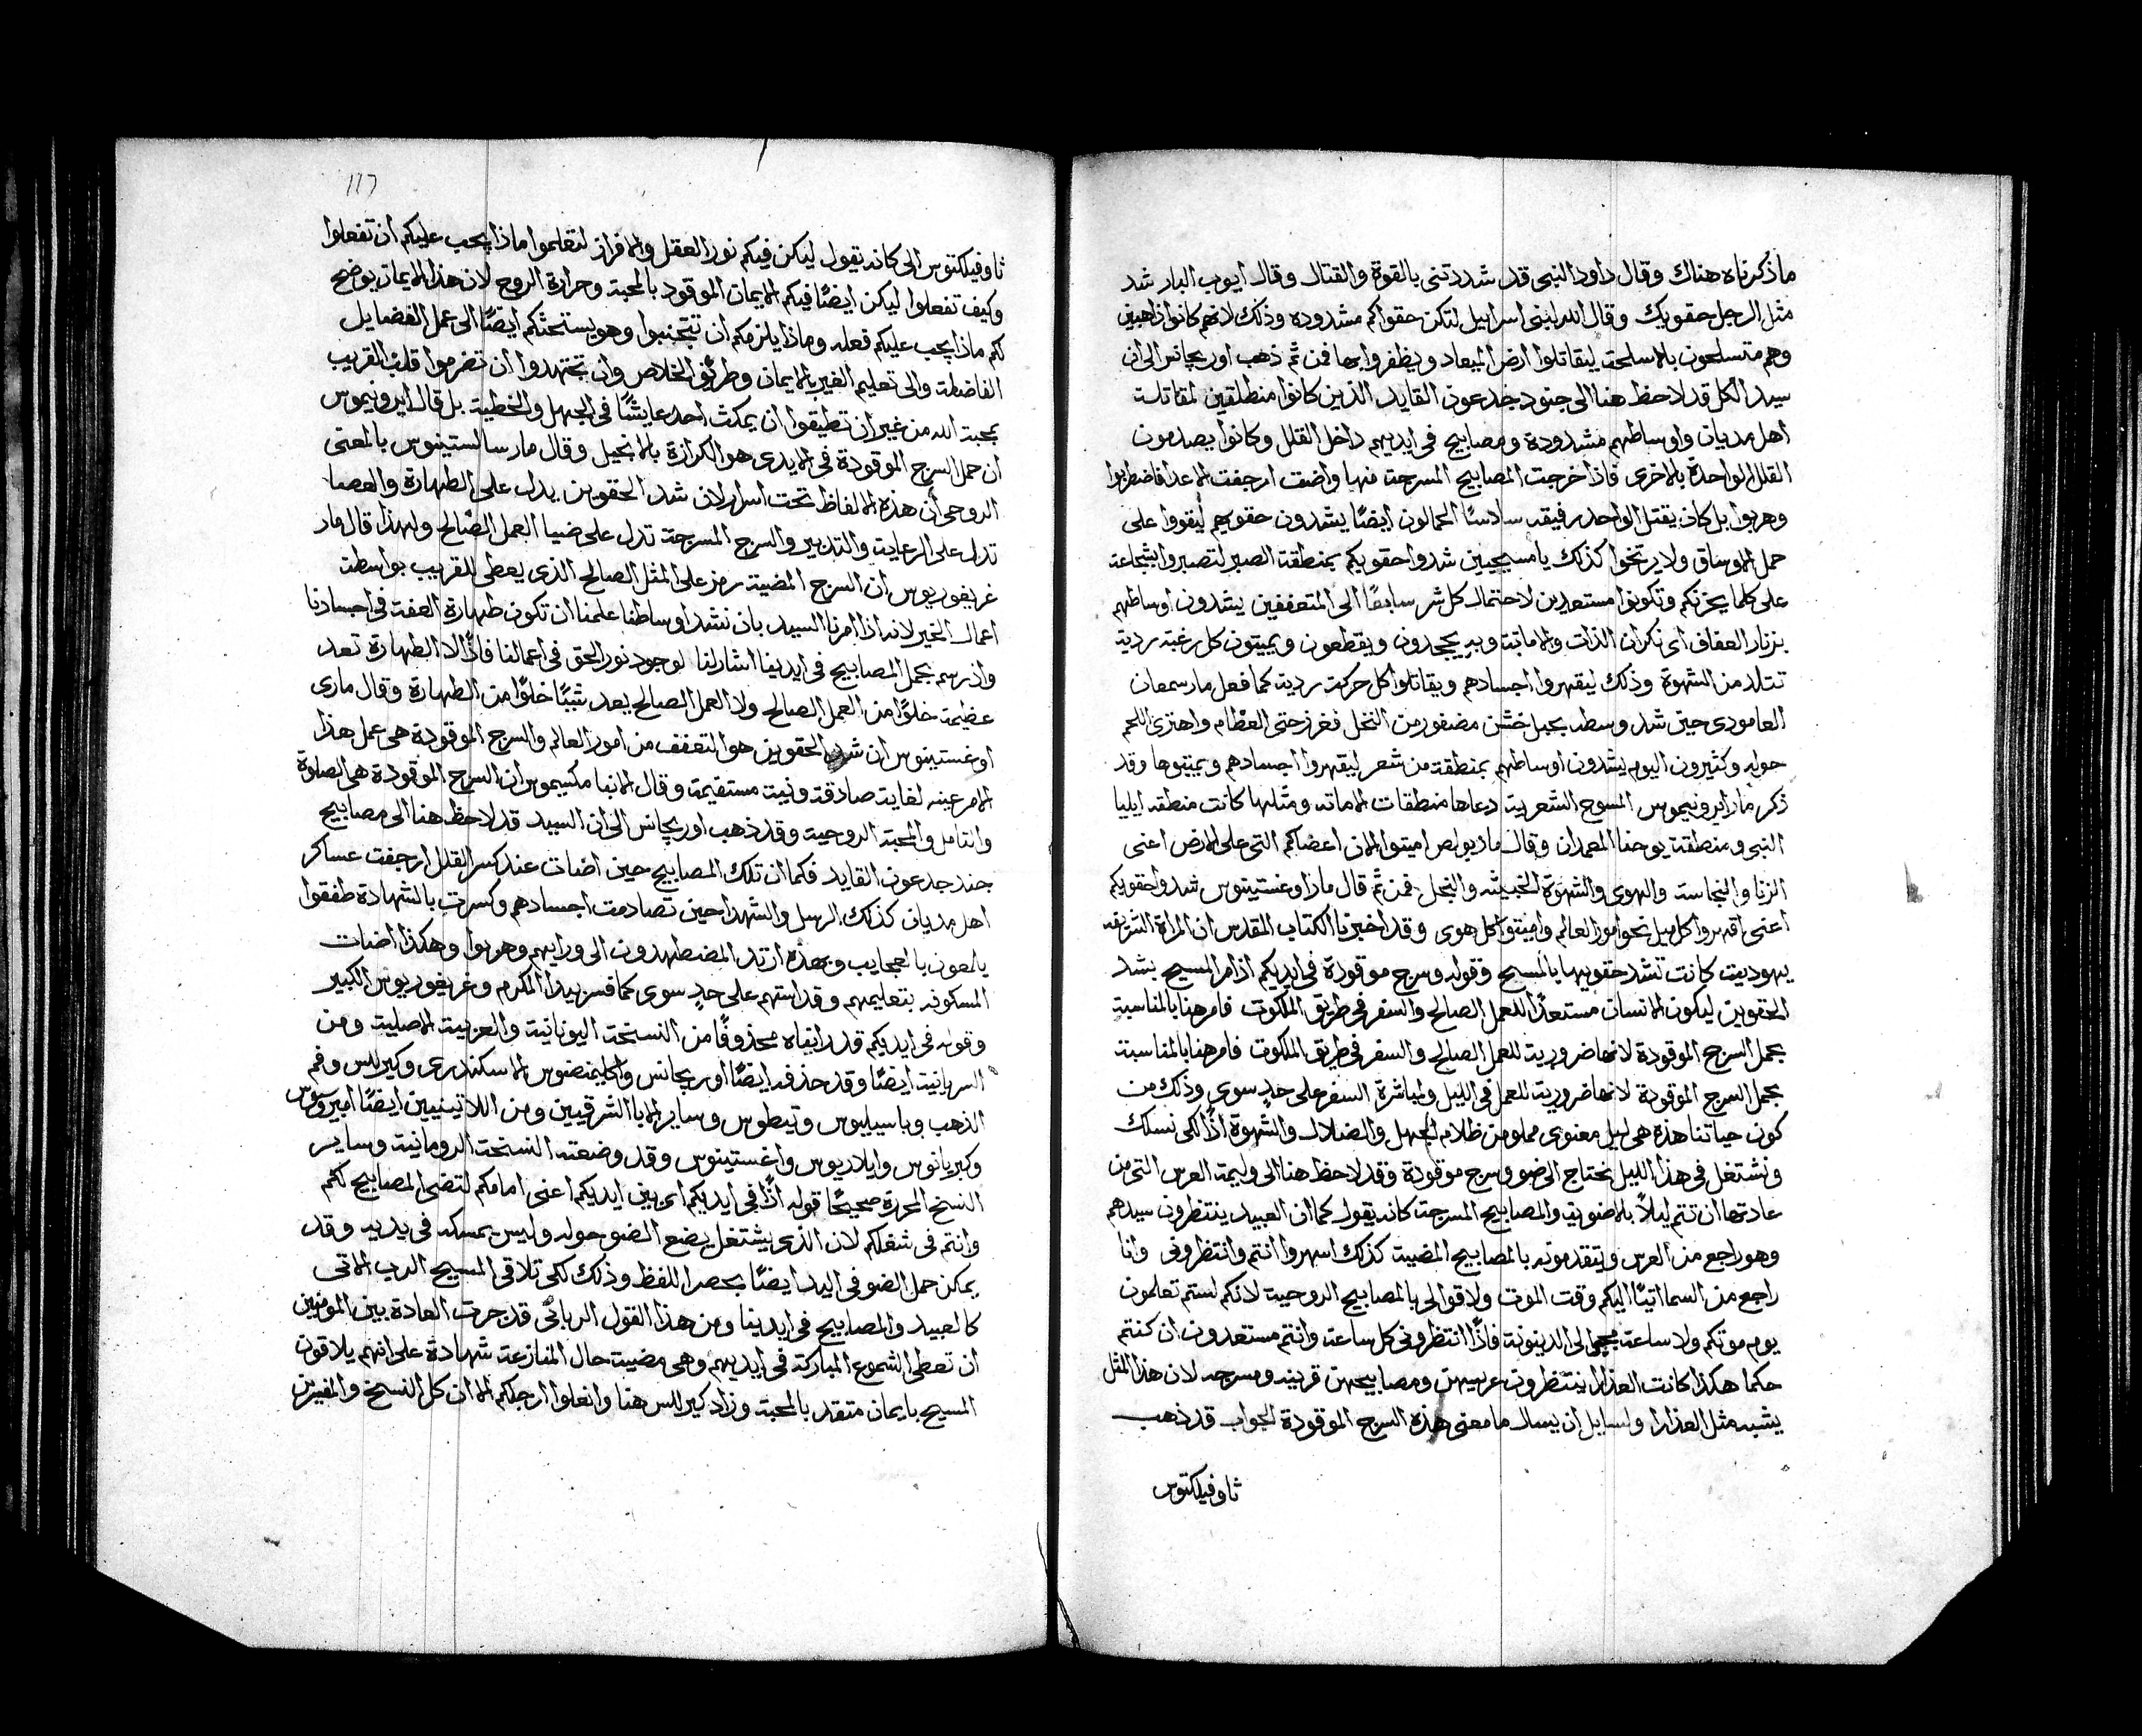 ماذكرناه هناك وقال داود النبي قد شددتني بالقوة والقتال وقال ايوب البار شد
مثل الرجل حقويك وقال الله لبني اسراييل لتكن حقواكم مشدوده وذلك لانهم كانوا ذاهبين
وهم متسلحون بالاسلحة ليقاتلوا ارض الميعاد ويظفروا بها فمن ثم ذهب اوريجانس الى ان
سيد الكل قد لاحظ هنا الى جنود جدعون القايد الذين كانوا منطلقين لمقاتلة
اهل مديان واوساطهم مشدودة ومصابيح في ايديهم داخل القلل وكانوا يصدمون
القلل الواحدة بالاخرى فاذا خرجت المصابيح المسرجة منها واضت ارجفت الاعدا فاضطربوا
وهربوا بل كان يقتل الواحد رفيقه سادسًا الحمالون ايضًا يشدون حقويهم ليقووا على
حمل الاوساق ولا يرتخوا كذلك يا مسيحيين شدوا حقويكم بمنطقة الصبر لتصبروا بشجاعة
على كلما يحزنكم وتكونوا مستعدين لاحتمال كل شر سابعًا الى المتعففين يشدون اوساطهم
بزنار العفاف اى نكران الذات والاماتة وبه يجحدون ويقطعون ويميتون كل رغبة ردية
تتلد من الشهوة وذلك ليقهروا اجسادهم ويقاتلوا كل حركة ردية كما فعل مار سمعان
العامودي حين شد وسطه بحبل خشن مضفور من النخل فغرز حتى العظام واهترى اللحم
حوله وكثيرون اليوم يشدون اوساطهم بمنطقة من شعر ليقهروا اجسادهم ويميتوها وقد
ذكر مار ايرونيموس المسوح الشعرية دعاها منطقات الاماته ومثلها كانت منطقة ايليا
النبي ومنطقة يوحنا المعمدان وقال مار بولص اميتوا الان اعضاكم التي على الارض اعنى
الزنا والنجاسة والهوى والشهوة الخبيثه والبخل فمن ثم قال مار اوغستينوس شدوا حقويكم
اعنى اقهروا كل ميل نحو امور العالم واميتوا كل هوى وقد اخبرنا الكتاب المقدس ان المراة الشريفه
يهوديت كانت تشد حقويها بالمسح وقوله وسرج موقودة في ايديكم اذ امر المسيح بشد
الحقوين ليكون الانسان مستعدًا للعمل الصالح والسفر في طريق الملكوت فامر هنا بالمناسبة
بحمل السرج الموقودة لانها ضرورية للعمل الصالح والسفر في طريق الملكوت فامر هنا بالمناسبة
بحمل السرج الموقودة لانها ضرورية للعمل في الليل ولمباشرة السفر على حدٍ سوى وذلك من
كون حياتنا هذه هي ليل معنوى مملو من ظلام الجهل والضلال والشهوة اذًا لكى نسلك
ونشتغل في هذا الليل نحتاج الى ضو وسرج موقودة وقد لاحظ هنا الى وليمة العرس التي من
عادتها ان تتم ليلاً بالاضوية والمصابيح المسرجة كانه يقول كما ان العبيد ينتظرون سيدهم
وهو راجع من العرس ويتقدمونه بالمصابيح المضيية كذلك اسهروا انتم وانتظروني وانا
راجع من السما اتيًا اليكم وقت الموت ولاقوا لي بالمصابيح الروحية لانكم لستم تعلمون
يوم موتكم ولا ساعة مجيى الى الدينونة فاذًا انتظروني كل ساعة وانتم مستعدون ان كنتم
حكما هكذا كانت العذارا ينتظرون عريسهن ومصابيحهن قريبه ومسرجه لان هذا المثل
يشبه مثل العذارا ولسايل ان يسال ما معنى هذه السرج الموقودة الجواب قد ذهب
ثاوفيلكتوس
117
ثاوفيلكتوس الى كانه يقول ليكن فيكم نور العقل والافراز لتعلموا ماذا يجب عليكم ان تفعلوا
وكيف تفعلوا ليكن ايضًا فيكم الايمان الموقود بالمحبة وحرارة الروح لان هذا الايمان يوضح
لكم ماذا يجب عليكم فعله وماذا يلزمكم ان تتجنبوا وهو يستحثكم ايضًا الى عمل الفضايل
الفاضلة والى تعليم الغير بالايمان وطريق الخلاص وان تجتهدوا ان تضرموا قلب القريب
بمحبة الله من غير ان تطيقوا ان يمكث احد عايشًا في الجهل والخطية بل قال ايرونيموس
ان حمل السرج الموقودة في الايدي هو الكرازة بالانجيل وقال مار سالستينوس بالمعنى
الروحي أن هذه الالفاظ تحت اسرار لان شد الحقوين يدل على الطهارة والعصا
تدل على الرعاية والتدبير والسرج المسرجة تدل على ضيا العمل الصالح ولهذا قال مار
غريغوريوس ان السرج المضية رمز على المثل الصالح الذي يعطى للقريب بواسطة
اعمال الخير لانه اذ امرنا السيد بان نشد اوساطنا علمنا ان تكون طهارة العفة في اجسادنا
واذ رسم بحمل المصابيح في ايدينا اشار لنا لوجود نور الحق في اعمالنا فاذًا لا الطهارة تعد
عظيمة خلوًا من العمل الصالح ولا العمل الصالح يعد شيًا خلوًا من الطهارة وقال ماري
اوغستينوس ان شد الحقوين هو التعفف من امور العالم والسرج الموقودة هي عمل هذا
الامر عينه لغاية صادقة ونية مستقيمة وقال الانبا مكسيموس ان السرج الموقودة هي الصلوة
والتامل والمحبة الروحية وقد ذهب اوريجانس الى ان السيد قد لاحظ هنا الى مصابيح
جند جدعون القايد فكما ان تلك المصابيح حين اضات عند كسر القلل ارجفت عساكر
اهل مديان كذلك الرسل والشهدا حين تصادمت اجسادهم وكسرت بالشهادة طفقوا
يلمعون بالعجايب وبهذه ارتد المضطهدون الى ورايهم وهربوا وهكذا اضات
المسكونه بتعليمهم وقداستهم على حدٍ سوى كما فسر بيدا المكرم وغريغوريوس الكبير
وقوله في ايديكم قد رايناه محذوفًا من النسخة اليونانية والعربية الاصلية ومن
السريانية ايضًا وقد حذفه ايضًا اوريجانس واكليمنضوس الاسكندري وكيرللس وفم
الذهب وباسيليوس وتيطوس وساير الابا الشرقيين ومن اللاتينيين ايضًا امبروسيوس
وكبريانوس وايلاريوس واغستينوس وقد وضعته النسخة الرومانية وساير
النسخ المحررة صحيحًا قوله اذًا في ايديكم اى بين ايديكم اعنى امامكم لتضى المصابيح لكم
وانتم في شغلكم لان الذي يشتغل يضع الضو حوله وليس يمسكه في يديه وقد
يمكن حمل الضو في اليد ايضًا بحصر اللفظ وذلك لكى تلاقى المسيح الرب الاتى
كالعبيد والمصابيح في ايدينا ومن هذا القول الرباني قد جرت العادة بين المومنين
ان تعطى الشموع المباركة في ايديهم وهي مضيية حال المنازعة شهادة على انهم يلاقون
المسيح بايمان متقد بالمحبة وزاد كيرللس هنا وانعلوا ارجلكم الا ان كل النسخ والمفسرين